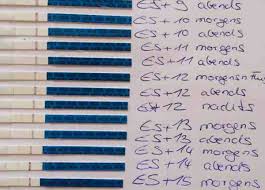 ES+9 abends
ES+10 morgens
ES+10 abends
ES+11 morgens
ES+11 abends
ES+12 morgens
ES+12 abends
ES+12 nachts
ES+13 morgens
ES+13 abends
ES+14 morgens
ES+14 abends
ES+15 morgens